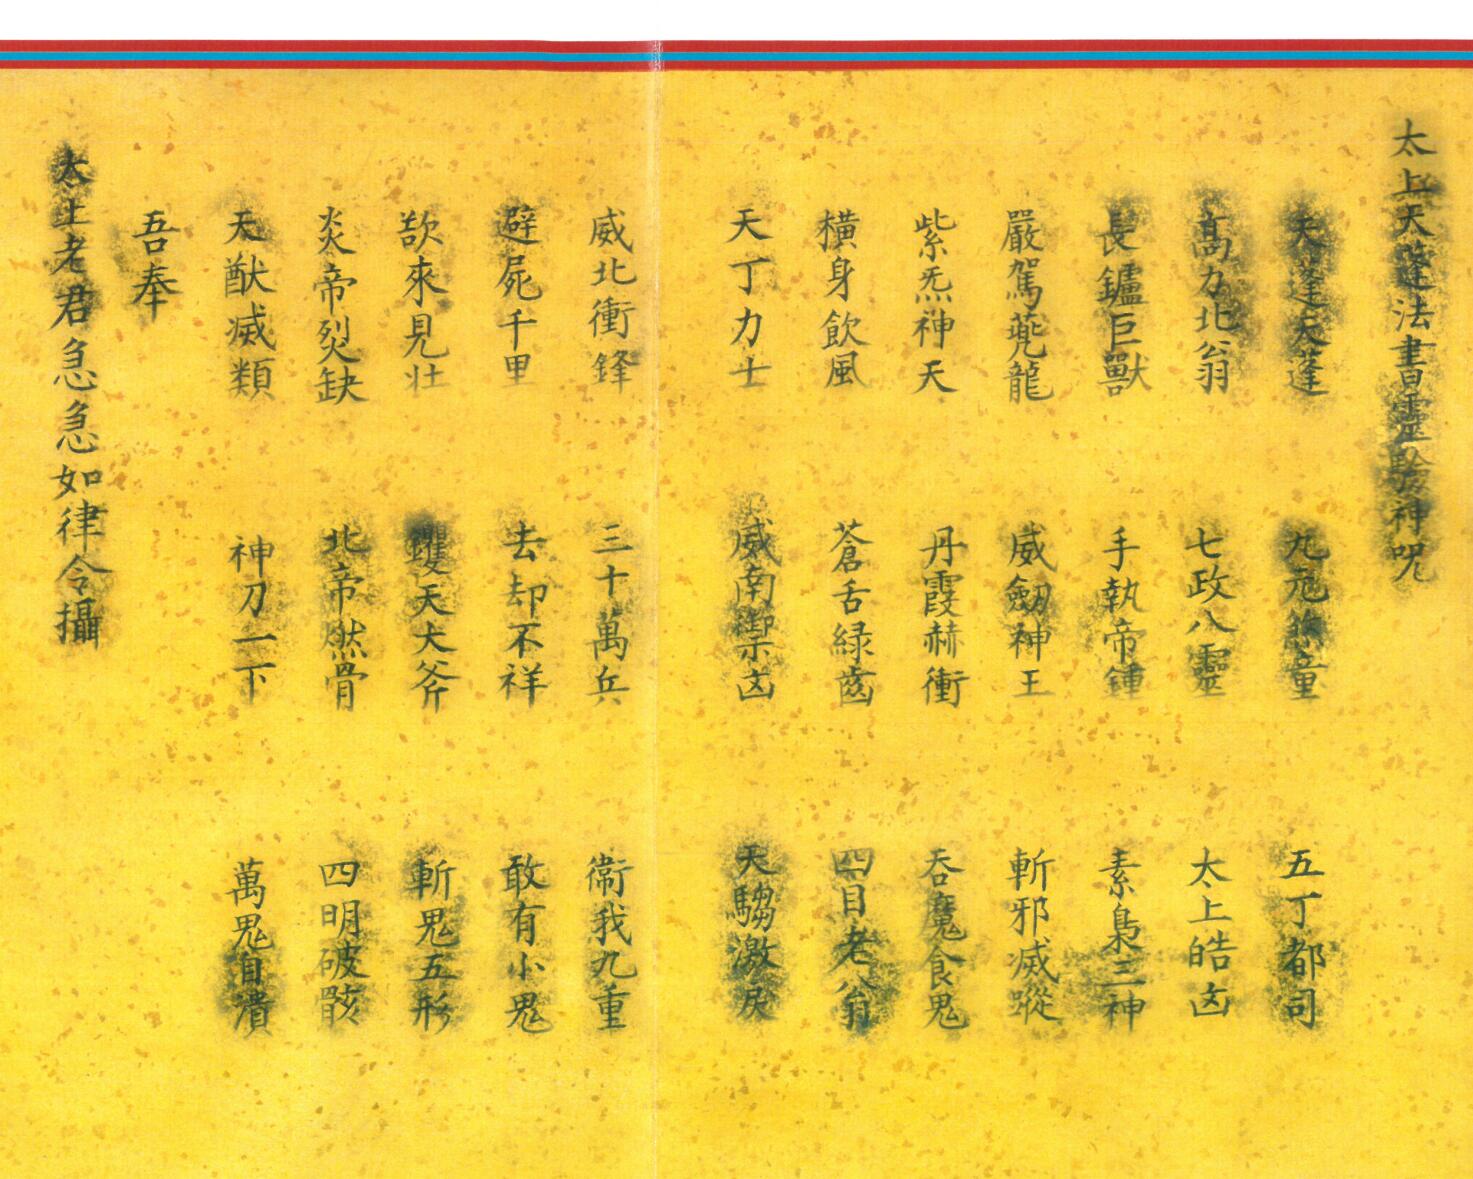 太上天蓬法書靈驗神咒
天蓬天蓬 九元煞童 五丁都司
高力北翁 七政八靈 太上皓凶
長鑪巨獸 手執帝鍾 素梟三神
嚴駕夔龍 威劒神王 斬邪滅蹤
紫炁神天 丹霞赫衝 吞魔食鬼
橫身飲風 蒼舌緑齒 四目老翁
天丁力士 威南禦凶 天騶激戾
威北衝鋒 三十萬兵 衛我九重
避屍千里 去却不祥 敢有小鬼
欲來見壯 钁天大斧 斬鬼五形
炎帝烈缺 北帝燃骨 四明破骸
天猷滅類 神刀一下 萬鬼自潰
吾奉
太上老君急急如律令攝